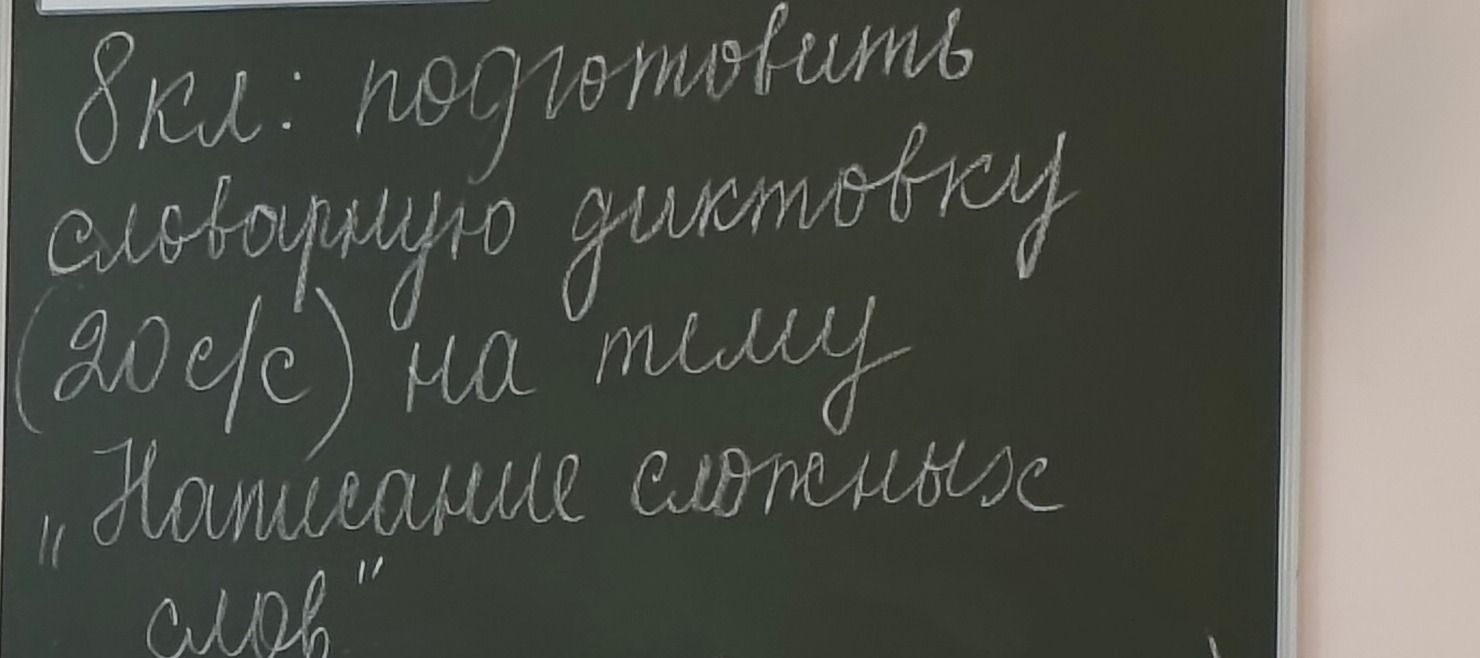 8кл: подготовить
словарную диктовку
(20 с/с) на тему
„Написание сложных
слов"